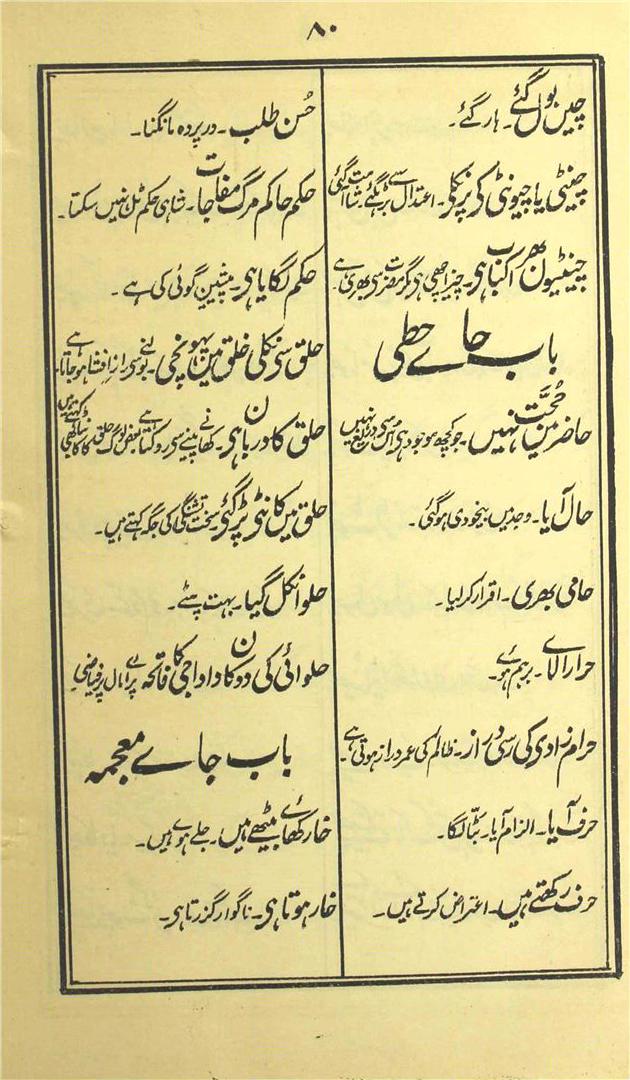 ۸۰
چیں بول گئے۔ ہار گئے۔
چینٹی یا چیونٹی کی پر نکلی۔ اعتدال سے بڑھ گئے۔ شامت آگئی
چینٹیوں بھرا کباب ہی۔ چیز اچھی ہی مگر مضرت سی بھری ہے
باب حاے حطی
حاضر میں حُجّت نہیں۔ جو کچھ موجود ہی اُس سی دریغ نہیں
حال آیا۔ وجد میں بیخودی ہو گئی۔
حامی بھری۔ اقرار کر لیا۔
حرارا لاے۔ برہم ہوے۔
حرام زادی کی رسی دراز۔ ظالم کی عمر دراز ہوتی ہے۔
حرف آیا۔ الزام آیا۔ بٹّا لگا۔
حرف رکھتے ہیں۔ اعتراض کرتے ہیں۔
حُسن طلب۔ در پردہ مانگنا۔
حکم حاکم مرگ مفاجات۔ شاہی حکم ٹل نہیں سکتا۔
حکم لگایا ہی۔ پیشین گوئی کی ہے۔
حلق سی نکلی خلق میں پہونچی۔ بولنے سی راز افشا ہو جاتا ہے
حلق کا دربان ہی۔ کھانے پینے سی روکتا ہے بعض لوگ حلق کا
حلق میں کانٹی پڑ گئی۔ سخت تشنگی کی جگہ کہتے ہیں۔
حلوا نکل گیا۔ بہت پٹے۔
حلوائی کی دوکان دادا جی کا فاتحہ۔ پراے مال پر فیاضی۔
باب خاے معجمہ
خار کھاے بیٹھے ہیں۔ جلے ہوے ہیں۔
خار ہوتا ہی۔ ناگوار گزرتا ہی۔